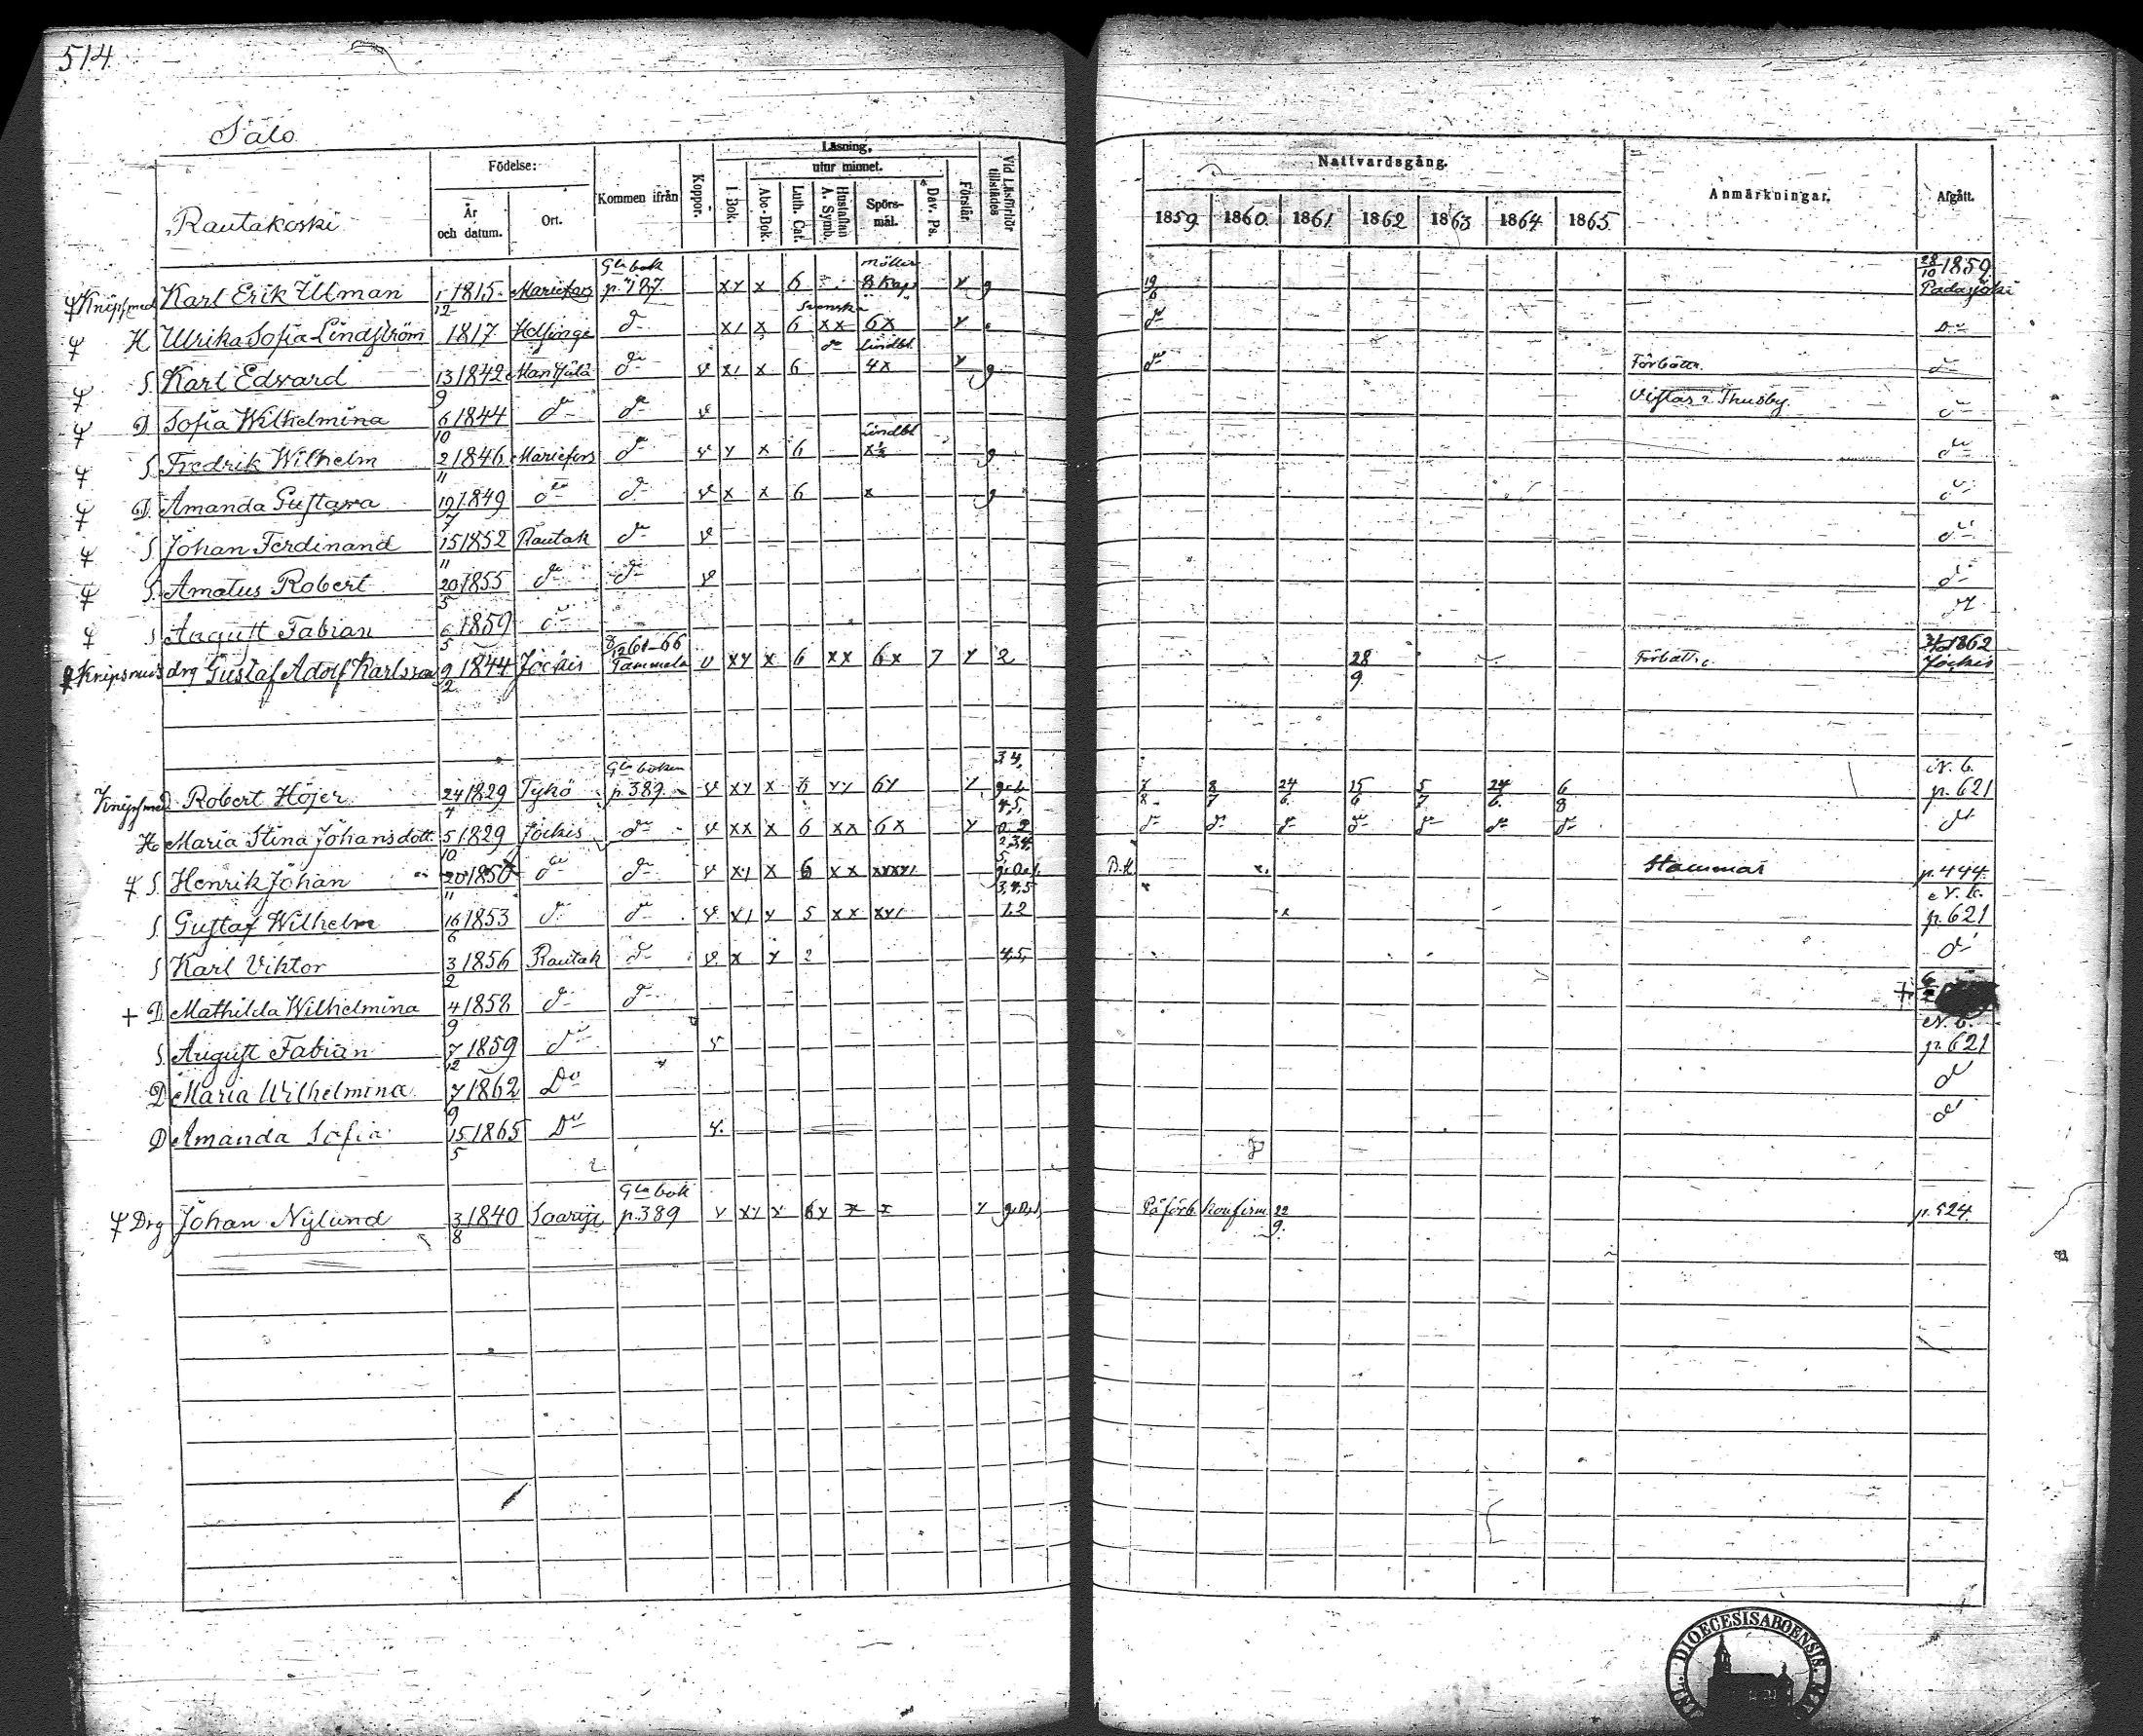 514
Salo
Rautakoski
Födelse:
År och datum.
Ort.
Kommen ifrån
Koppor.
Läsning,
utur minnet.
I. Bok.
Abc-Bok.
Luth. Cat.
Hustaflan A. Symb.
Spörsmål.
Dav. Ps.
Förstår
Vid Läsförhör tillstädes
Nattvardsgång.
1859. 1860. 1861. 1862 1863 1864. 1865.
Anmärkningar.
Afgått.
Gla bok Möller 28/10 1859
Knipsmed Karl Erik Ullman 1/12 1815 Mariefors p. 787 xy x 6 y g 19/6 Padasjoki
Svenska
H Ulrika Sofia Lindström 1817 Helsinge d:o x x 6 xx 6x y d:o d:o
Lindbl.
S. Karl Edvard 13/9 1842 d:o v x x 6 4x y g d:o Förbättr. d:o
D Sofia Wilhelmina 6/10 1844 d:o d:o v Vistas i Thusby d:o
Lindbl
S. Fredrik Wilhelm 2/11 1846 Mariefors d:o v y x 6 g d:o
D. Amanda Gustava 19/7 1849 d:o d:o v x x 6 x g d:o
S Johan Ferdinand 15/11 1852 Rautak d:o v d:o
S. Amatus Robert 20/5 1855 d:o d:o v d:o
S August Fabian 6/5 1859 d:o
61-66 1862
Knipsmeds drg Gustaf Adolf Karlsson 9/2 1844 Jockis Tammela v xy x 6 xx 6x 7 y 2 28/9 Förbättr. Jockis
Gla boken 3.4. N. b.
Knipsmed Robert Höjer 24/4 1829 Tykö p. 389 v xy x 6 yy 6y y 7/8 8/7 24/6 15/6 5/7 24/6 6/8 p. 621
H Maria Stina Johansdott. 5/10 1829 Jockis d:o v xx x 6 xx 6x y d:o d:o d:o d:o d:o d:o d:o d:o
S. Henrik Johan 20/11 1850 d:o d:o v x x 6 xx B.K. Stammar p. 444
3,4,5 N. b.
S. Gustaf Wilhelm 16/6 1853 d:o d:o v x y 5 xx 1.2 p. 621
S Karl Viktor 3/2 1856 Rautak d:o v x y 2 4,5, d:o
+ D Mathilda Wilhelmina 4/9 1858 d:o d:o +
N. b.
S. August Fabian 7/12 1859 d:o v p. 621
D Maria Wilhelmina 7/9 1862 D:o d:o
D Amanda Sofia 15/5 1865 D:o v. d:o
Gla bok
Drg Johan Nylund 3/8 1840 Saarij. p. 389 v xy y 6y x x y På förb. Konfirm. 22/9. p. 524.
DIOECESIS ABOENSIS